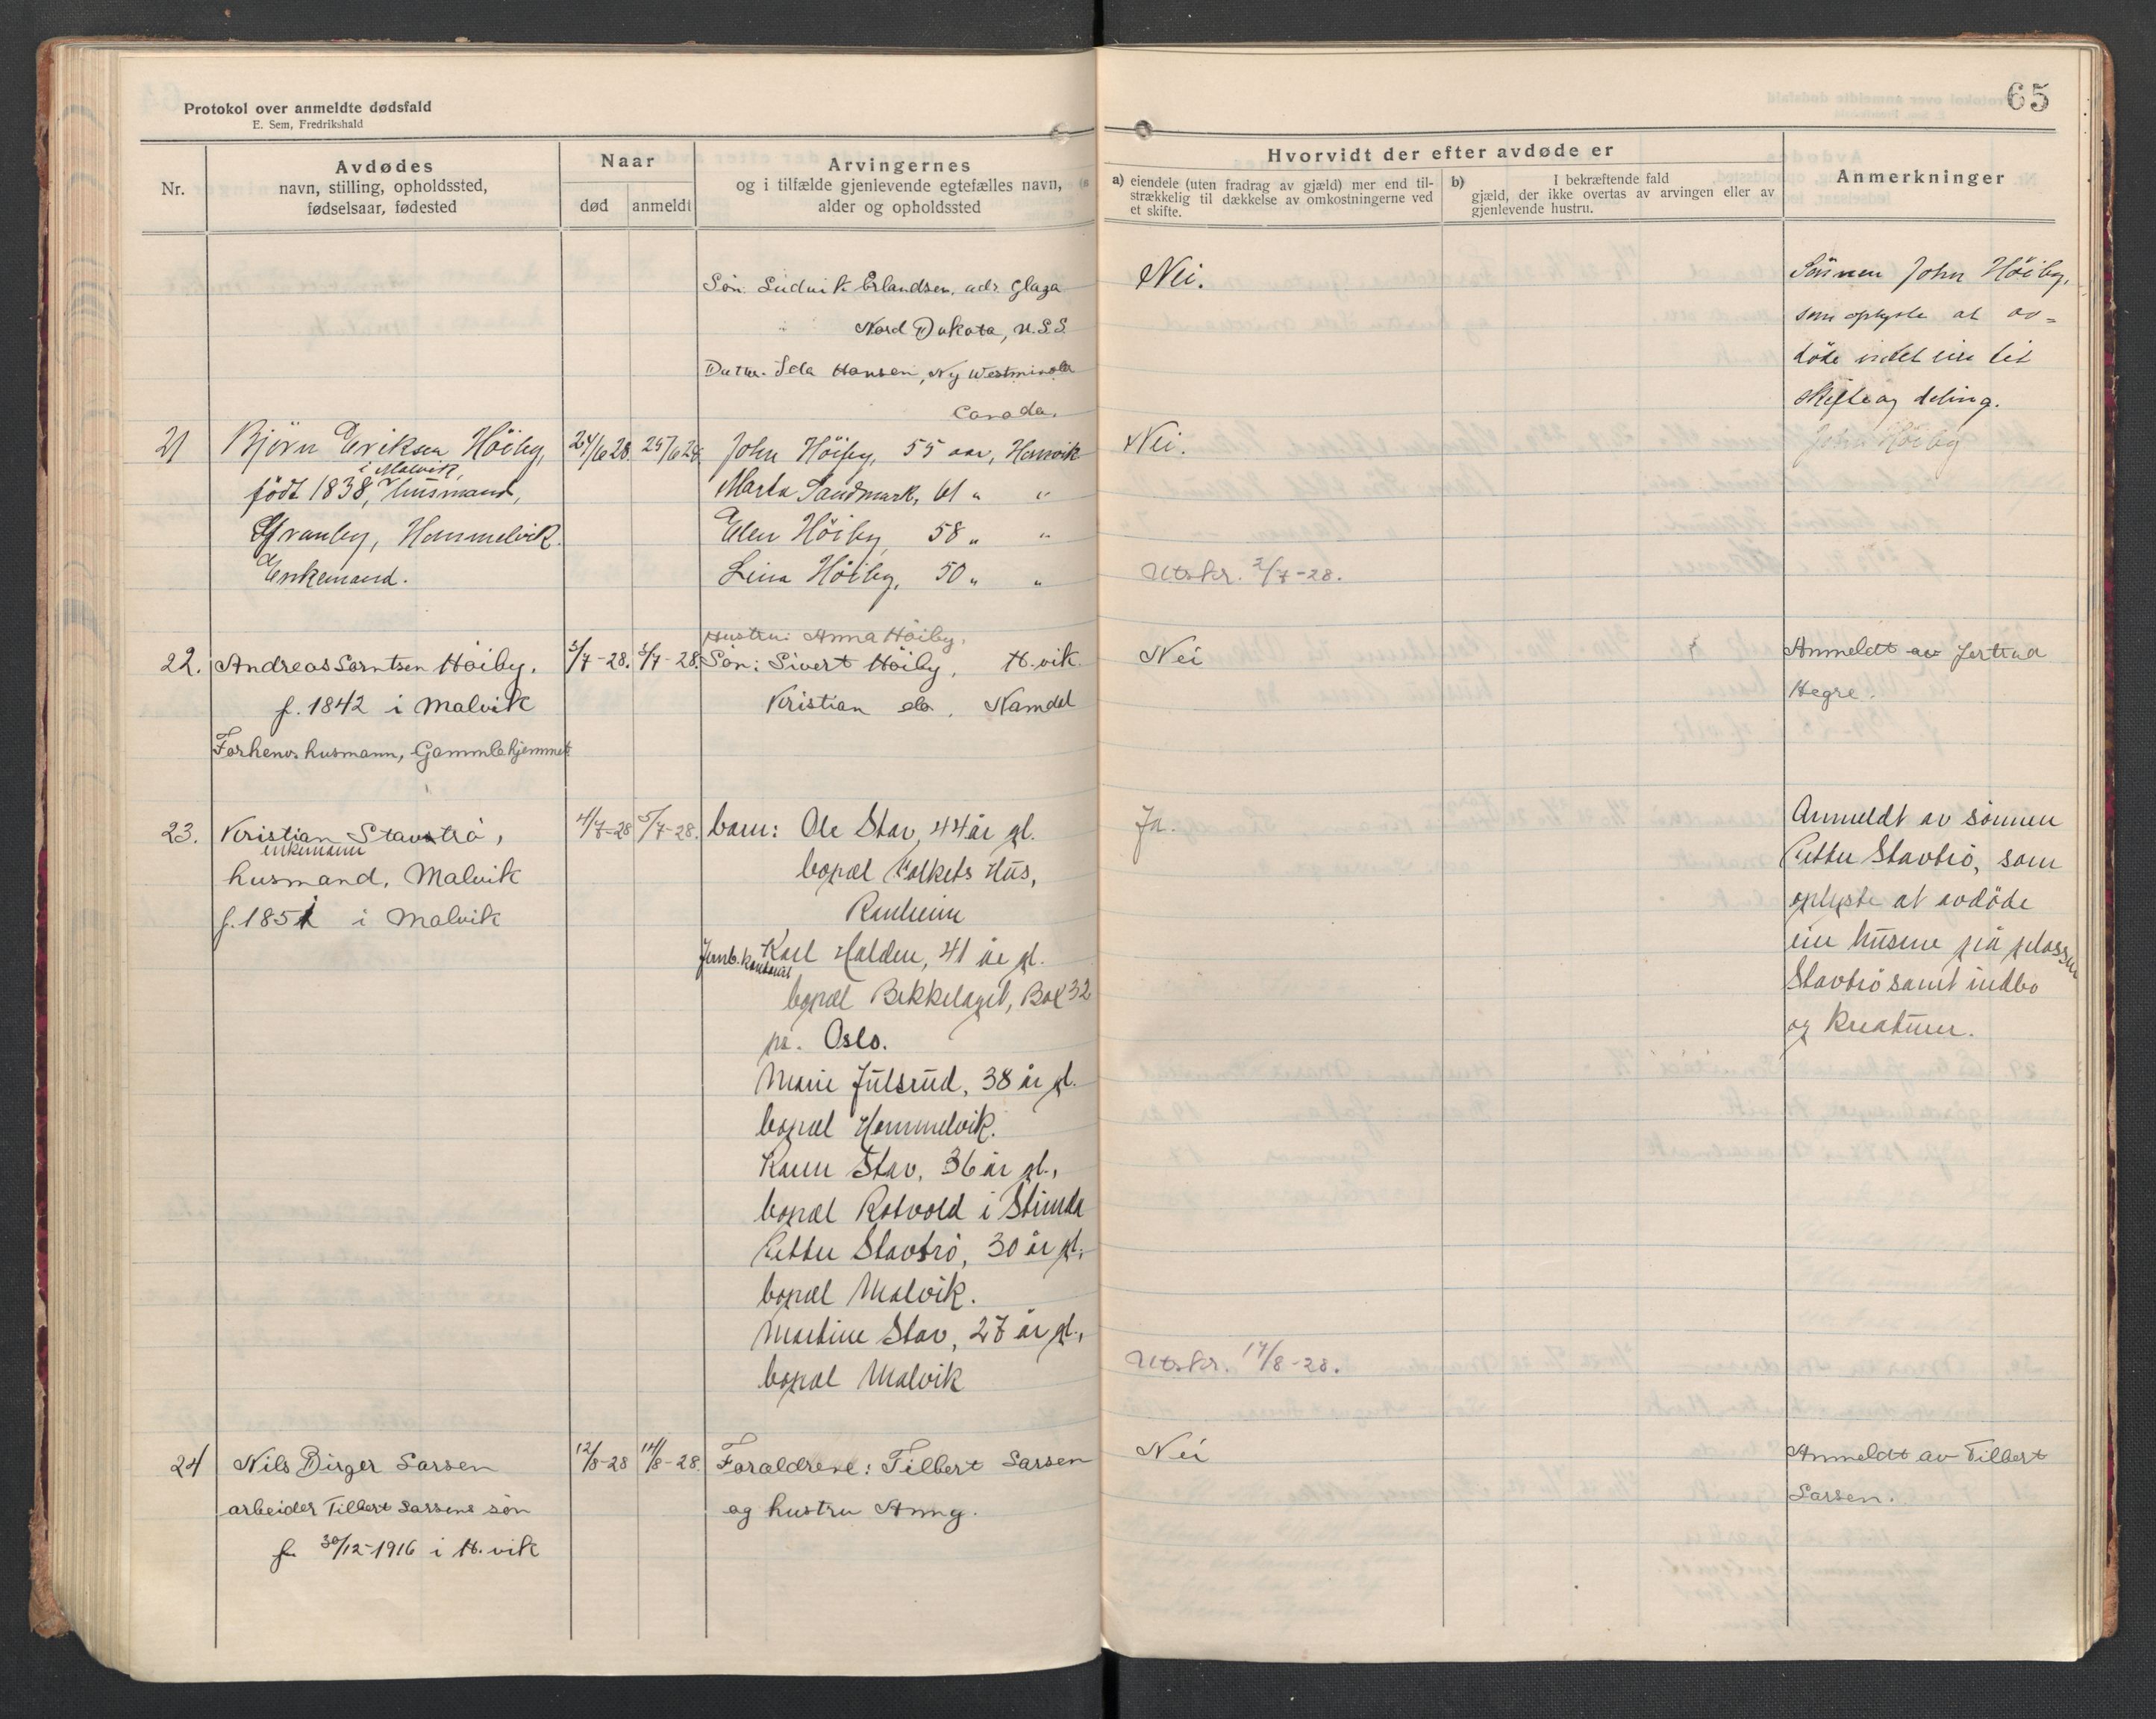 Protokol over anmeldte dødsfald
E. Sem, Fredrikshald
65
Nr.
Avdødes
navn, stilling, opholdssted,
fødselsaar, fødested
Naar
død
anmeldt
Arvingernes
og i tilfælde gjenlevende egtefælles navn,
alder og opholdssted
Hvorvidt der efter avdøde er
a) eiendele (uten fradrag av gjæld) mer end til-
strækkelig til dækkelse av omkostningerne ved
et skifte.
b) I bekræftende fald
gjæld, der ikke overtas av arvingen eller av
gjenlevende hustru.
Anmerkninger
Søn Ludvik Erlandsen, adr. Glaza
Nord Dakota, U.S.S.
Datter Ida Hansen, Ny Westminster
Canada.
Nei.
Sönnen John Höiby,
som oplyste at av-
döde intet eier til
skifte og deling.
John Höiby
21
Björn Eriksen Höiby,
i Malvik,
født 1838, husmand,
Granby, Hommelvik.
Enkemand.
24/6 28.
25/6 28
John Höiby, 55 aar, Homvik
Marta Sandmark, 61 " "
Elen Höiby 58 " "
Lina Höiby, 50 " "
Nei.
Utskr. 2/7-28.
22.
Andreas Sørntsen Höiby.
f. 1842 i Malvik
Forhenv. husmann, Gamlehjemmet
3/7-28.
5/7-28.
Hustru: Anna Höiby.
Søn: Sivert Höiby, H.vik.
Kristian do. Namdal
Nei
Anmeldt av Jertrud
Hegre.
23.
Kristian Stavtrö,
enkemann
husmand, Malvik
f. 1851 i Malvik
4/7-28
5/7-28.
barn: Ole Stav, 44 år gl.
bopæl Folkets Hus,
Ranheim
Karl Halden, 41 år gl.
Jernb.kontoret
bopæl Bekkelaget, Box 32
pr. Oslo.
Marie Julsrud, 38 år gl.
bopæl Hommelvik.
Karen Stav, 36 år gl.,
bopæl Rotvold i Strinda
Petter Stavtrö, 30 år gl.
bopæl Malvik.
Martine Stav, 27 år gl.,
bopæl Malvik
Ja.
Utskr. 17/8-28.
Anmeldt av sönnen
Petter Stavtrö, som
oplyste at avdöde
eier husene på plassen
Stavtrö samt indbo
og kreaturer.
24
Nils Birger Larsen
arbeider Tilbert Larsens søn
f. 30/12-1916 i H.vik
12/8-28
14/8-28.
Forældrene: Tilbert Larsen
og hustru Anny.
Nei
Anmeldt av Tilbert
Larsen.